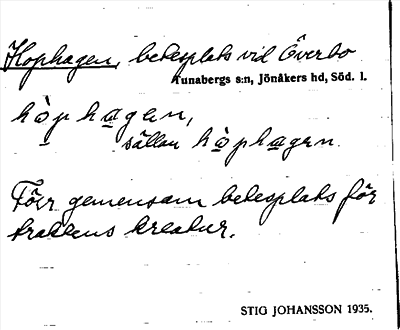 Kophagen, betesplats vid Överbo
Tunabergs s:n, Jönåkers hd, Söd. l.
hòphagen,
sällan hòphagen.
Förr gemensam betesplats för
traktens kreatur.
STIG JOHANSSON 1935.